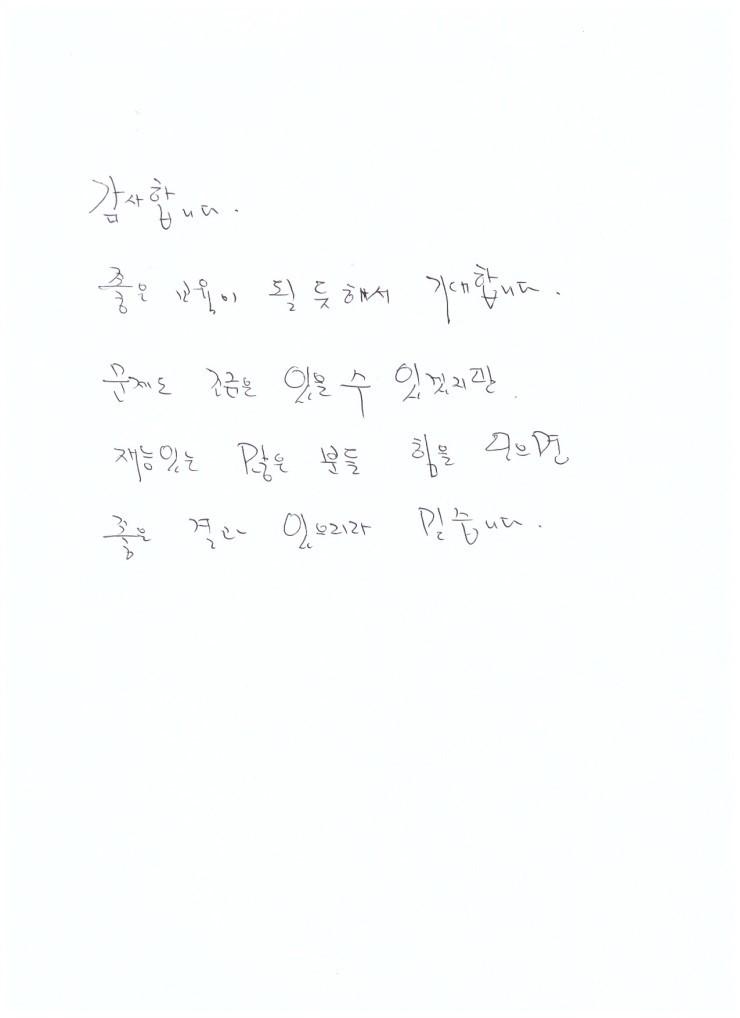 감사합니다.
좋은 교육이 될 듯해서 기대합니다.
문제도 조금은 있을 수 있겠지만
재능있는 많은 분들 힘을 모으면
좋은 결과 있으리라 믿습니다.